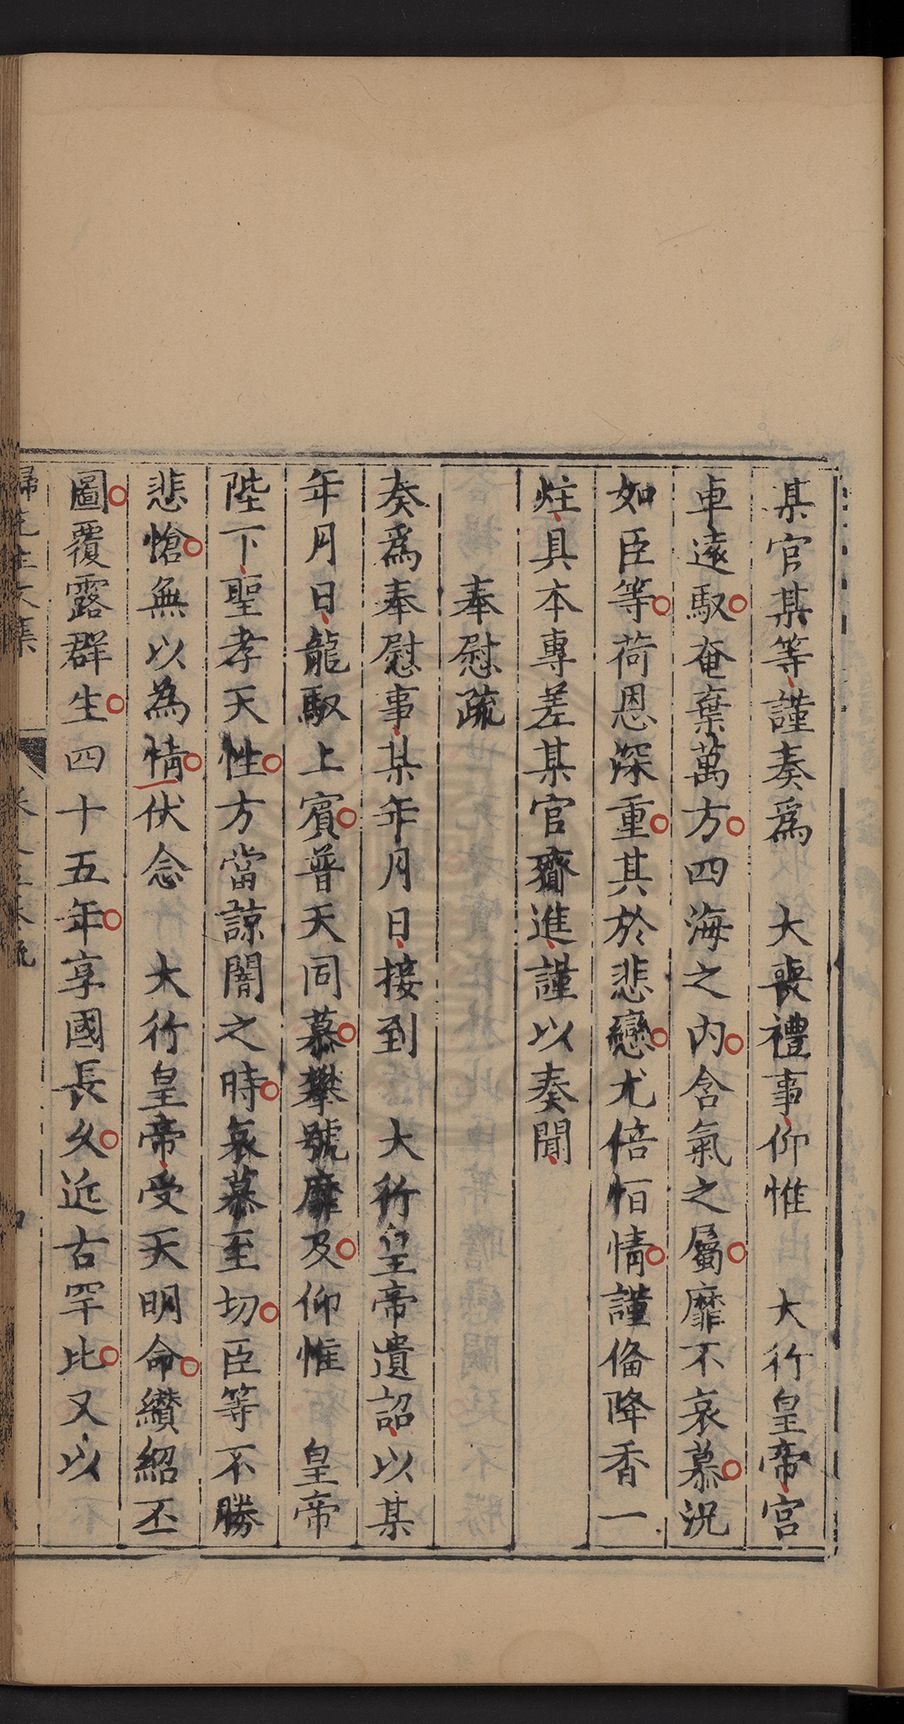 某官某等謹奏爲　大喪禮事仰惟　大行皇帝宮
車遠馭奄棄萬方四海之内含氣之屬靡不哀慕況
如臣等荷恩深重其於悲戀尤倍恒情謹偹降香一
炷具本專差某官齎進謹以奏聞
奉慰疏
奏爲奉慰事某年月日接到　大行皇帝遺詔以某
年月日龍馭上賓普天同慕攀號靡及仰惟　皇帝
陛下聖孝天性方當諒闇之時哀慕至切臣等不勝
悲愴無以為情伏念　大行皇帝受天明命纘紹丕
圖覆露群生四十五年享國長久近古罕比又以